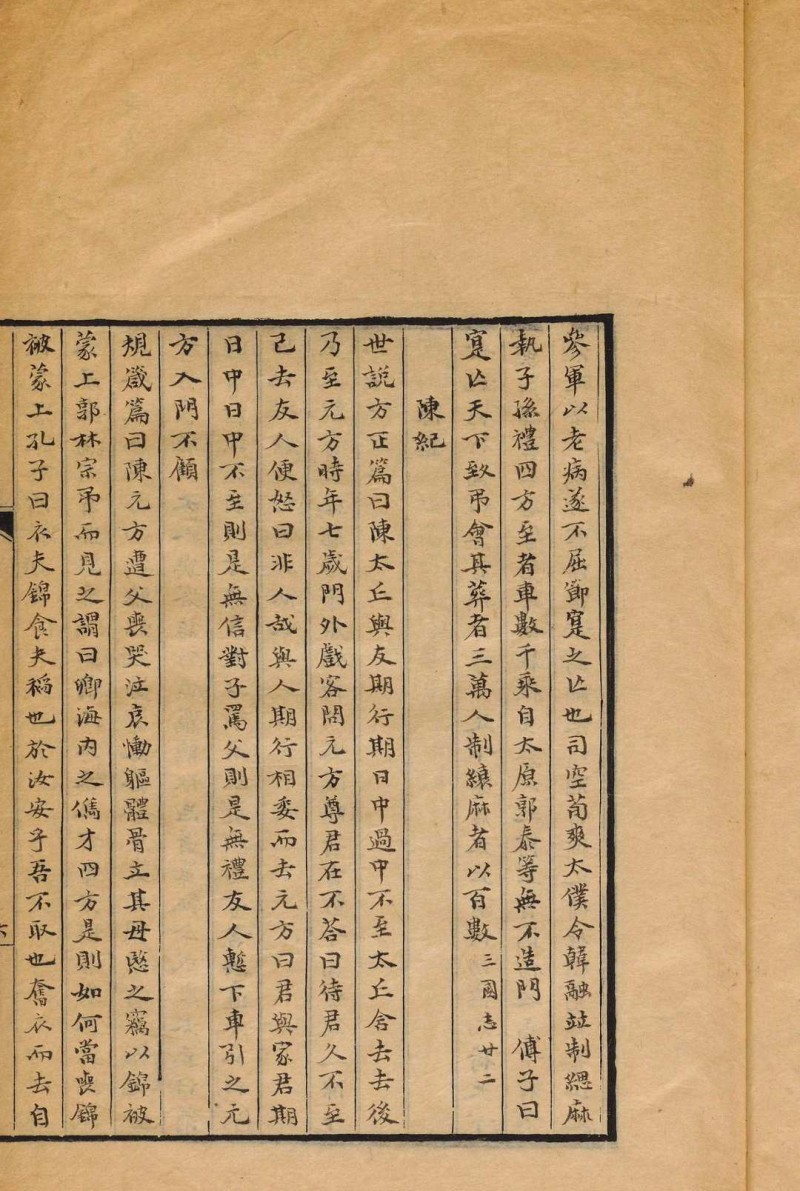 參軍以老病遂不屈鄭寔之亡也司空荀爽太僕令韓融並制緦麻
執子孫禮四方至者車數千乘自太原郭泰等無不造門　傅子曰
寔亡天下致弔會其葬者三萬人制縗麻者以百數三國志廿二
陳紀
世說方正篇曰陳太丘與友期行期日中過中不至太丘舍去去後
乃至元方時年七歲門外戲客問元方尊君在不答曰待君久不至
已去友人便怒曰非人哉與人期行相委而去元方曰君與家君期
日中日中不至則是無信對子罵父則是無禮友人慙下車引之元
方入門不顧
規箴篇曰陳元方遭父喪哭泣哀慟軀體骨立其母愍之竊以錦被
蒙上郭林宗弔而見之謂曰卿海內之儁才四方是則如何當喪錦
被蒙上孔子曰衣夫錦食夫稻也於汝安乎吾不取也奮衣而去自
六